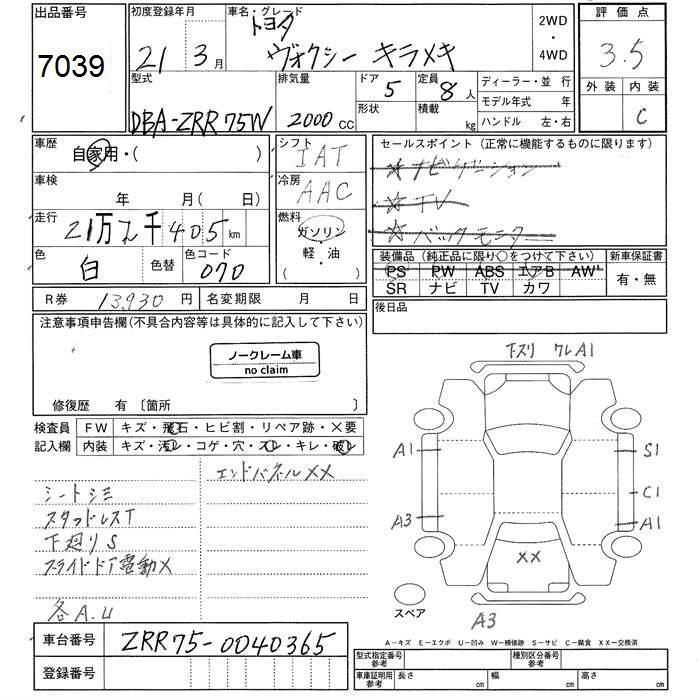 出品番号
7039
初度登録年月
21 3月
車名・グレード
トヨタ
ヴォクシー キラメキ
2WD
・
4WD
評価点
3.5
外装 内装
C
型式
DBA-ZRR75W
排気量
2000 CC
ドア
5
形状
定員
8人
積載
kg
ディーラー・並行
モデル年式 年
ハンドル 左・右
車歴
自家用・( )
車検
年 月( 日)
走行
21万 千405km
色
白
色替
色コード
070
シフト
IAT
冷房
AAC
燃料
ガソリン
軽・油
セールスポイント (正常に機能するものに限ります)
☆ナビゲーション
☆TV
☆バックモニター
装備品 (純正品に限り○をつけて下さい)
PS PW ABS エアB AW
SR ナビ TV カワ
新車保証書
有・無
R券 13,930円
名変期限 月 日
後日品
注意事項申告欄(不具合内容等は具体的に記入して下さい)
ノークレーム車
no claim
修復歴 有 〔箇所 〕
検査員
記入欄
FW キズ・飛石・ヒビ割・リペア跡・×要
内装 キズ・汚レ・コゲ・穴・スレ・キレ・破レ
エンドパネルXX
シートシミ
スタッドレスT
下廻りS
スライドドア電動X
各A.U
下ズリ ワレA1
A1
A3
S1
C1
A1
XX
A3
スペア
A-キズ E-エクボ U-凹み W-補修跡 S-サビ C-腐食 XX-交換済
車台番号
ZRR75-0040365
登録番号
型式指定番号
参考
種別区分番号
参考
車庫証明用
参考
長さ cm
幅 cm
高さ cm